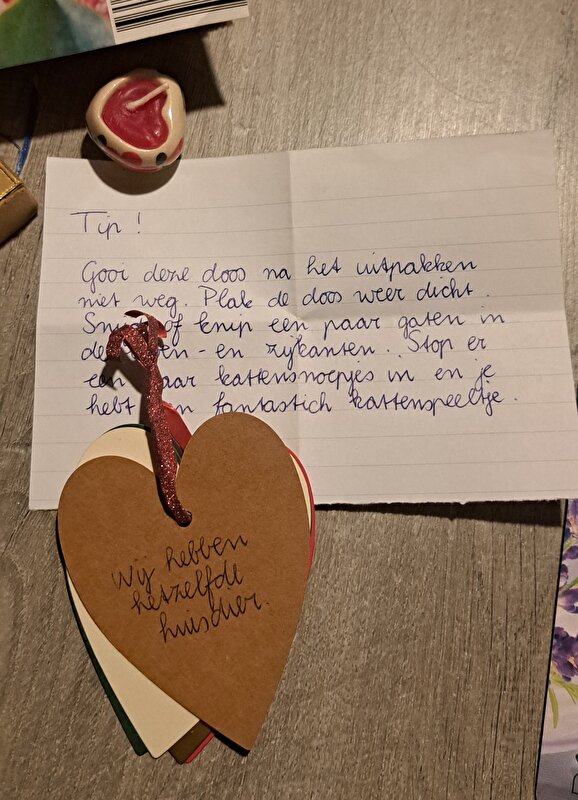 Tip !
Gooi deze doos na het uitpakken
niet weg. Plak de doos weer dicht.
of knip een paar gaten in
- en zijkanten. Stop er
kattensnoepjes in en je
hebt fantastich kattenspeeltje.
Wij hebben
hetzelfde
huisdier.